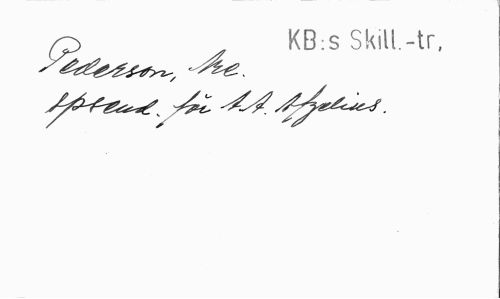 KB:s Skill.-tr,
Pederson, Nic.
pseud. för A.A. Afzelius.